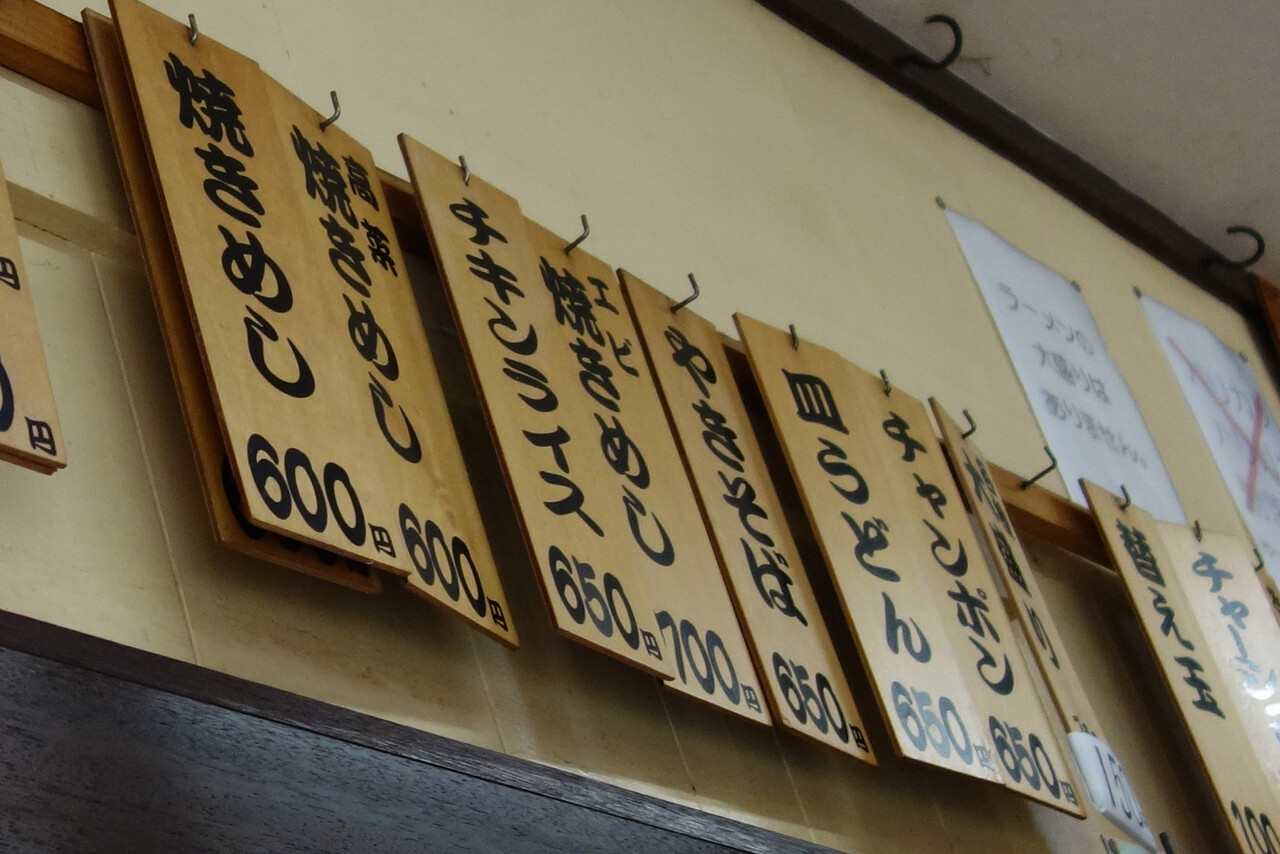 円
円
焼きめし
600円
高菜
焼きめし
600円
チキンライス
650円
エビ
焼きめし
700円
やきそば
650円
皿うどん
650円
チャンポン
650円
150
替え玉
100
ラーメンの
大盛りは
ありません。